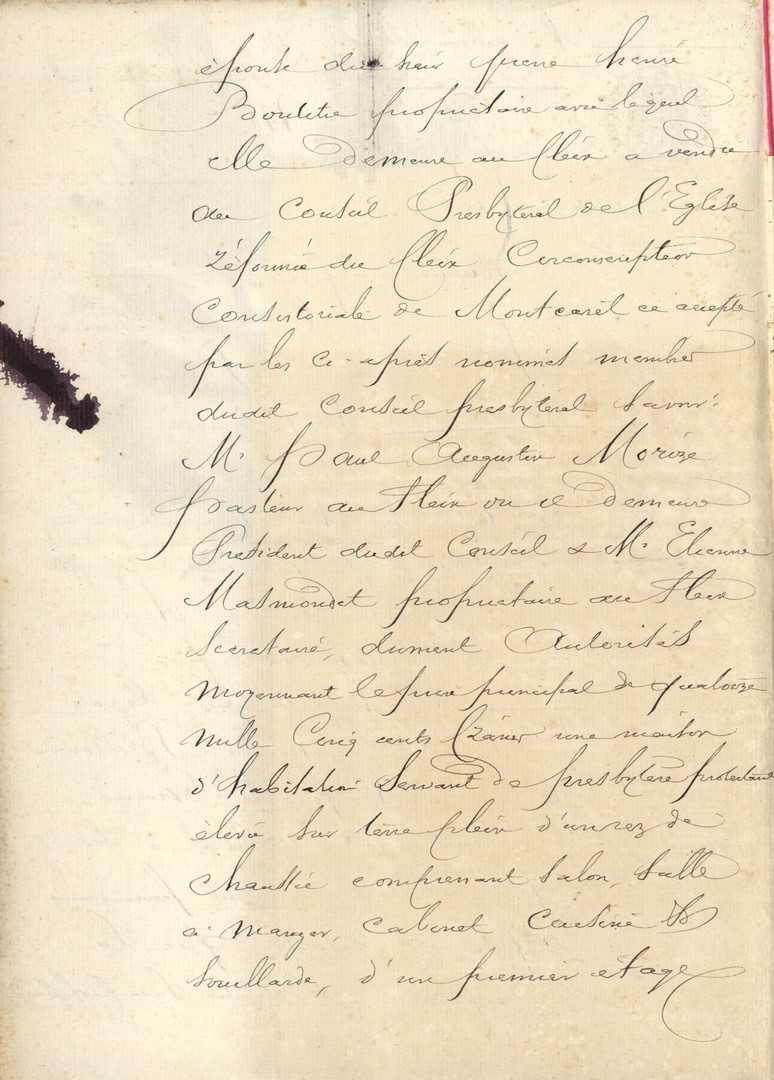 épouse du sieur pierre henri
propriétaire avec lequel
elle demeure au fleix a vendu
au Conseil Presbytéral de l'Eglise
réformée du fleix Circonscription
Consistoriale de Montcarèt ce accepté
par les ci-après nommés membres
dudit Conseil presbyteral savoir:
Mr Paul Augustin Morize
Pasteur au fleix ou il demeure
Président dudit Conseil & Mr Etienne
Masmondet propriétaire au fleix
Secretaire, dument Autorisés
moyennant le prix principal de quatorze
mille Cinq cents francs une maison
d'habitation Servant de presbytère protestant
élevée sur terre plein d'un rez de
chaussée comprenant salon, salle
à manger, cabinet cuisine &
souillarde, d'un premier étage